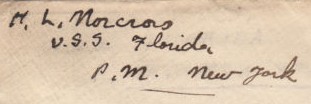 H. L. Norcross
U.S.S. Florida
P.M. New York